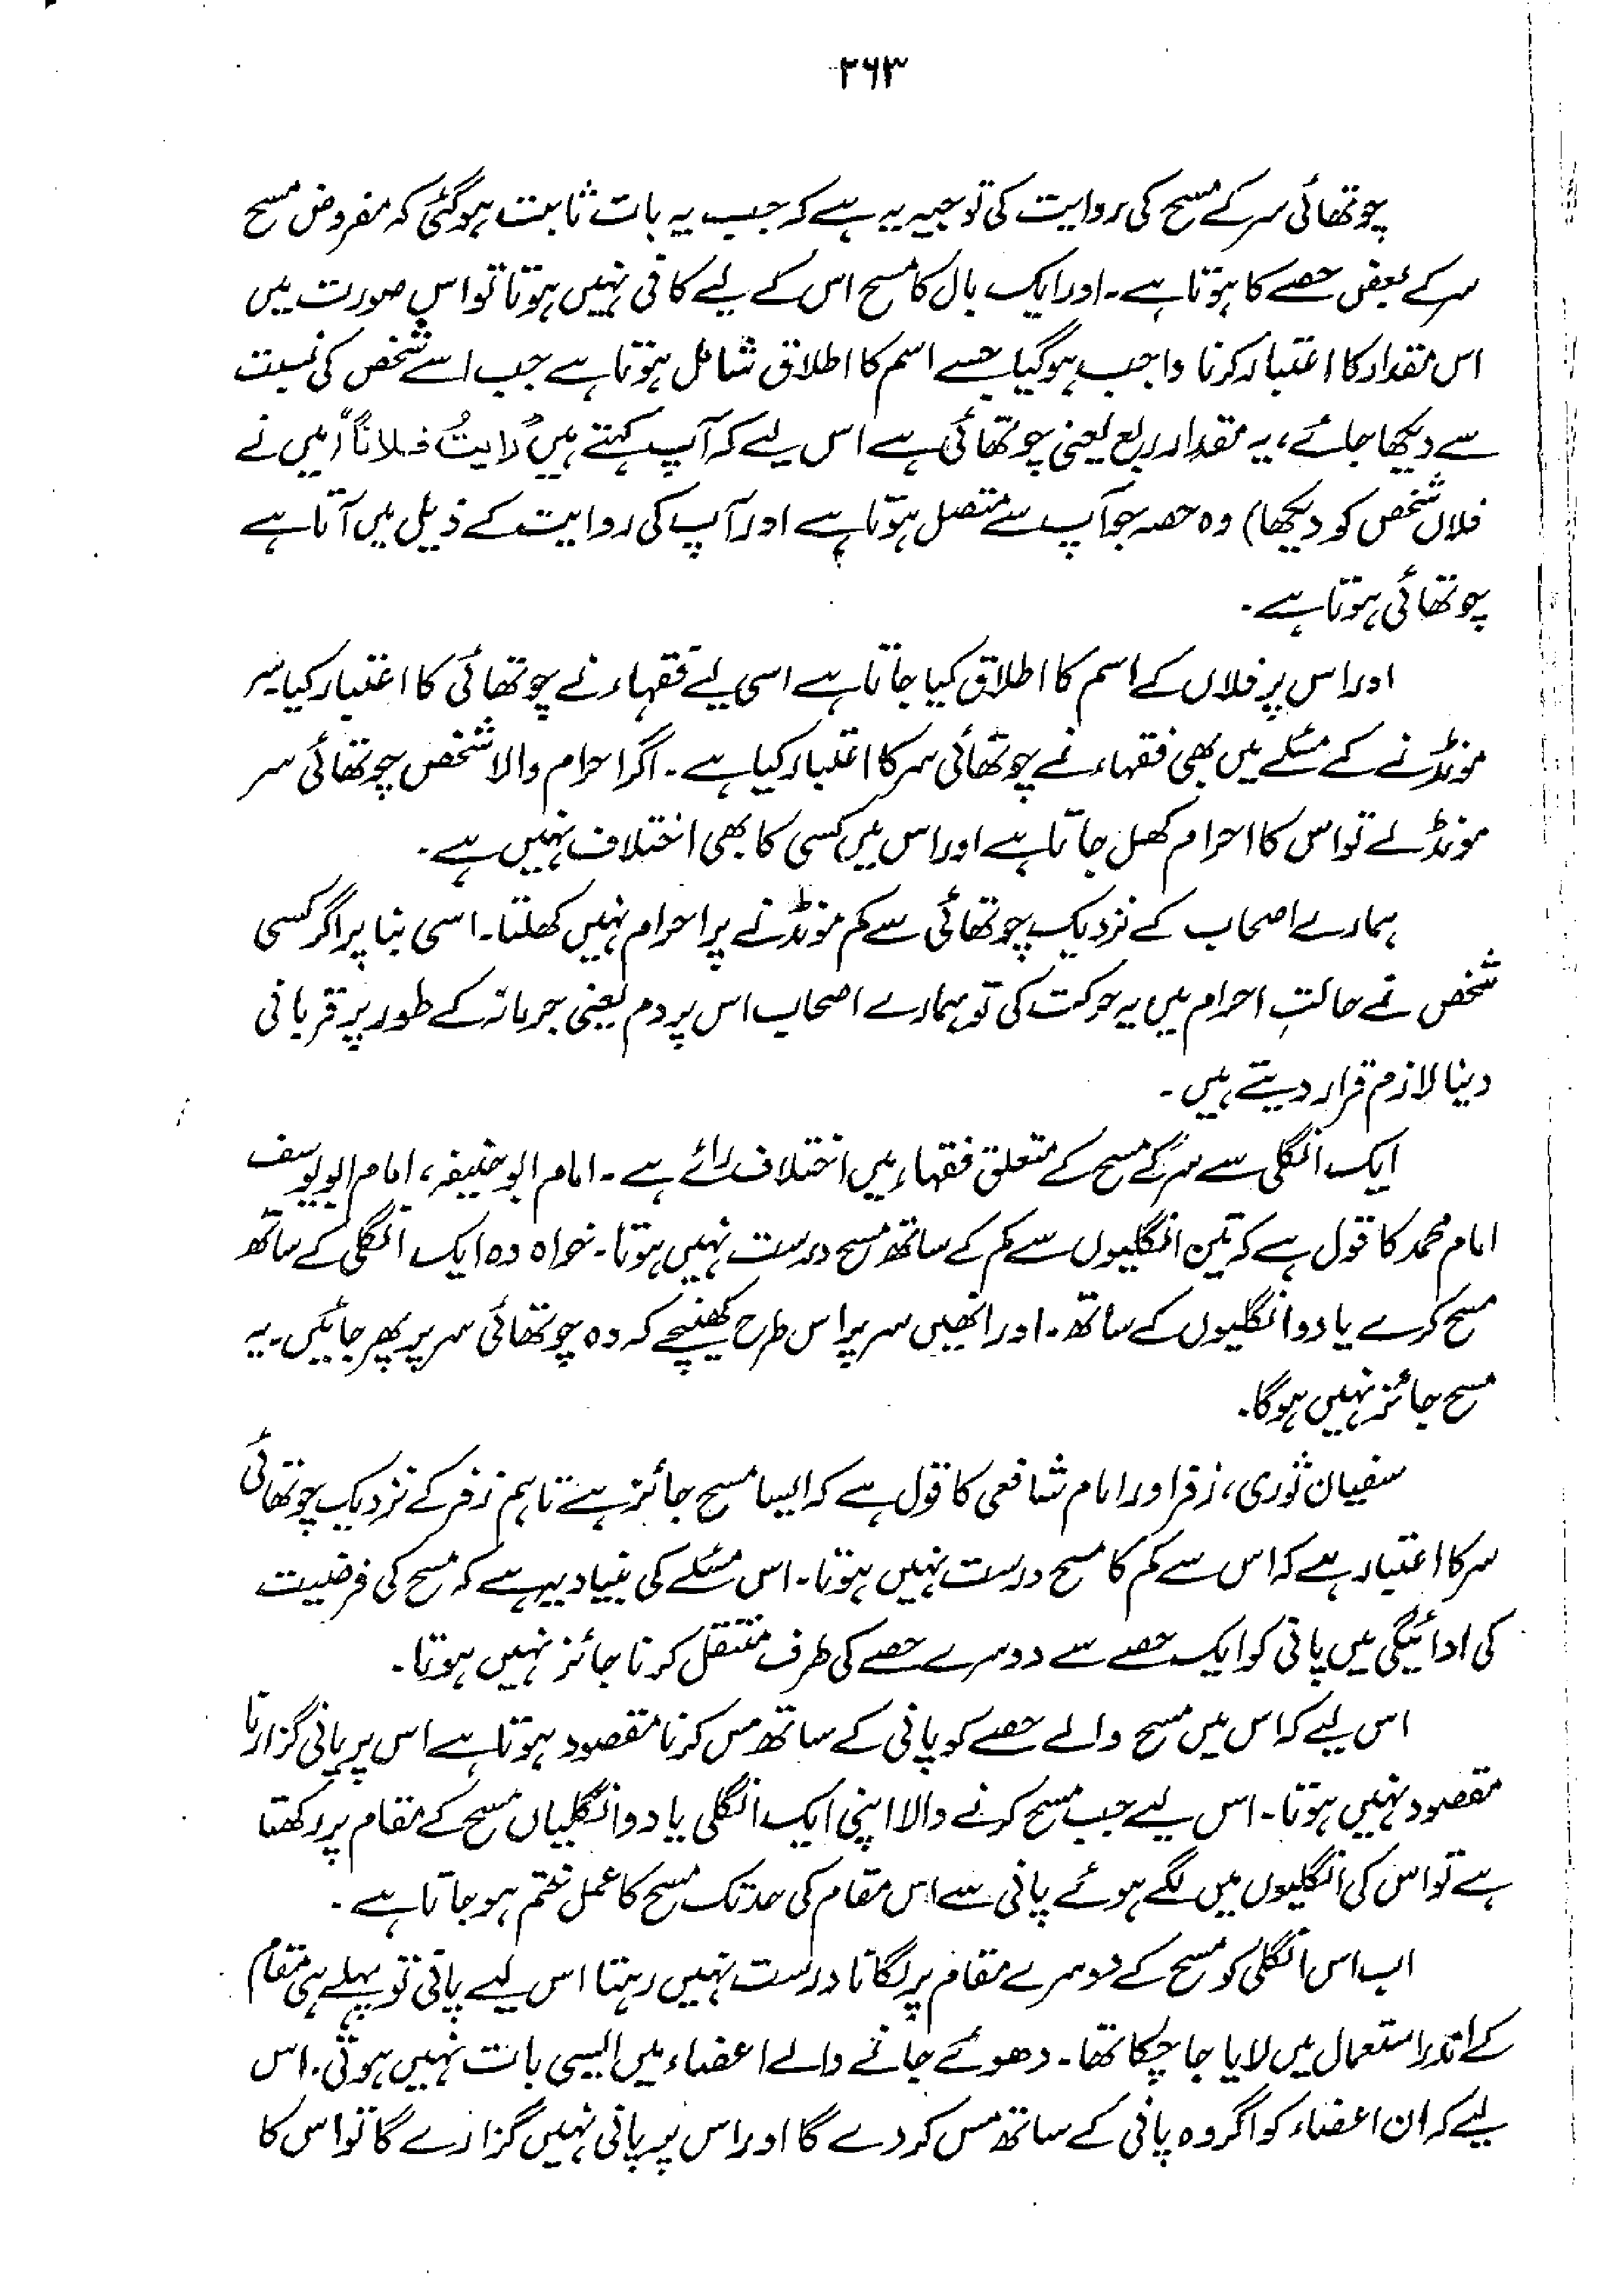 ۲۶۳
چوتھائی سر کے مسح کی روایت کی توجیہ یہ ہے کہ جب یہ بات ثابت ہوگئی کہ مفروض مسح
سر کے بعض حصے کا ہوتا ہے۔ اور ایک بال کا مسح اس کے لیے کافی نہیں ہوتا تو اس صورت میں
اس مقدار کا اعتبار کرنا واجب ہوگیا جسے اسم کا اطلاق شامل ہوتا ہے جب اسے شخص کی نسبت
سے دیکھا جائے، یہ مقدار ربع یعنی چوتھائی ہے اس لیے کہ آپ کہتے ہیں "رایتُ فلاناً" (میں نے
فلاں شخص کو دیکھا) وہ حصہ جو آپ سے متصل ہوتا ہے اور آپ کی روایت کے ذیل میں آتا ہے
چوتھائی ہوتا ہے۔
اور اس پر فلاں کے اسم کا اطلاق کیا جاتا ہے اسی لیے فقہاء نے چوتھائی کا اعتبار کیا سر
مونڈنے کے مسئلے میں بھی فقہاء نے چوتھائی سر کا اعتبار کیا ہے۔ اگر احرام والا شخص چوتھائی سر
مونڈلے تو اس کا احرام کھل جاتا ہے اور اس میں کسی کا بھی اختلاف نہیں ہے۔
ہمارے اصحاب کے نزدیک چوتھائی سے کم مونڈنے پر احرام نہیں کھلتا۔ اسی بنا پر اگر کسی
شخص نے حالتِ احرام میں یہ حرکت کی تو ہمارے اصحاب اس پر دم یعنی جرمانہ کے طور پر قربانی
دینا لازم قرار دیتے ہیں۔
ایک انگلی سے سر کے مسح کے متعلق فقہاء میں اختلاف رائے ہے۔ امام ابوحنیفہ، امام ابویوسف
امام محمد کا قول ہے کہ تین انگلیوں سے کم کے ساتھ مسح درست نہیں ہوتا۔ خواہ وہ ایک انگلی کے ساتھ
مسح کرے یا دو انگلیوں کے ساتھ۔ اور انھیں سر پر اس طرح کھینچے کہ وہ چوتھائی سر پر پھر جائیں۔ یہ
مسح جائز نہیں ہوگا۔
سفیان ثوری، زفر اور امام شافعی کا قول ہے کہ ایسا مسح جائز ہے تاہم زفر کے نزدیک چوتھائی
سر کا اعتبار ہے کہ اس سے کم کا مسح درست نہیں ہوتا۔ اس مسئلے کی بنیاد یہ ہے کہ مسح کی فرضیت
کی ادائیگی میں پانی کو ایک حصے سے دوسرے حصے کی طرف منتقل کرنا جائز نہیں ہوتا۔
اس لیے کہ اس میں مسح والے حصے کو پانی کے ساتھ مس کرنا مقصود ہوتا ہے اس پر پانی گزارنا
مقصود نہیں ہوتا۔ اس لیے جب مسح کرنے والا اپنی ایک انگلی یا دو انگلیاں مسح کے مقام پر رکھتا
ہے تو اس کی انگلیوں میں لگے ہوئے پانی سے اس مقام کی حد تک مسح کا عمل ختم ہو جاتا ہے۔
اب اس انگلی کو مسح کے دوسرے مقام پر لگانا درست نہیں رہتا اس لیے پانی تو پہلے ہی مقام
کے اندر استعمال میں لایا جا چکا تھا۔ دھوئے جانے والے اعضاء میں ایسی بات نہیں ہوتی۔ اس
لیے کہ ان اعضاء کو اگر وہ پانی کے ساتھ مس کر دے گا اور اس پر پانی نہیں گزارے گا تو اس کا